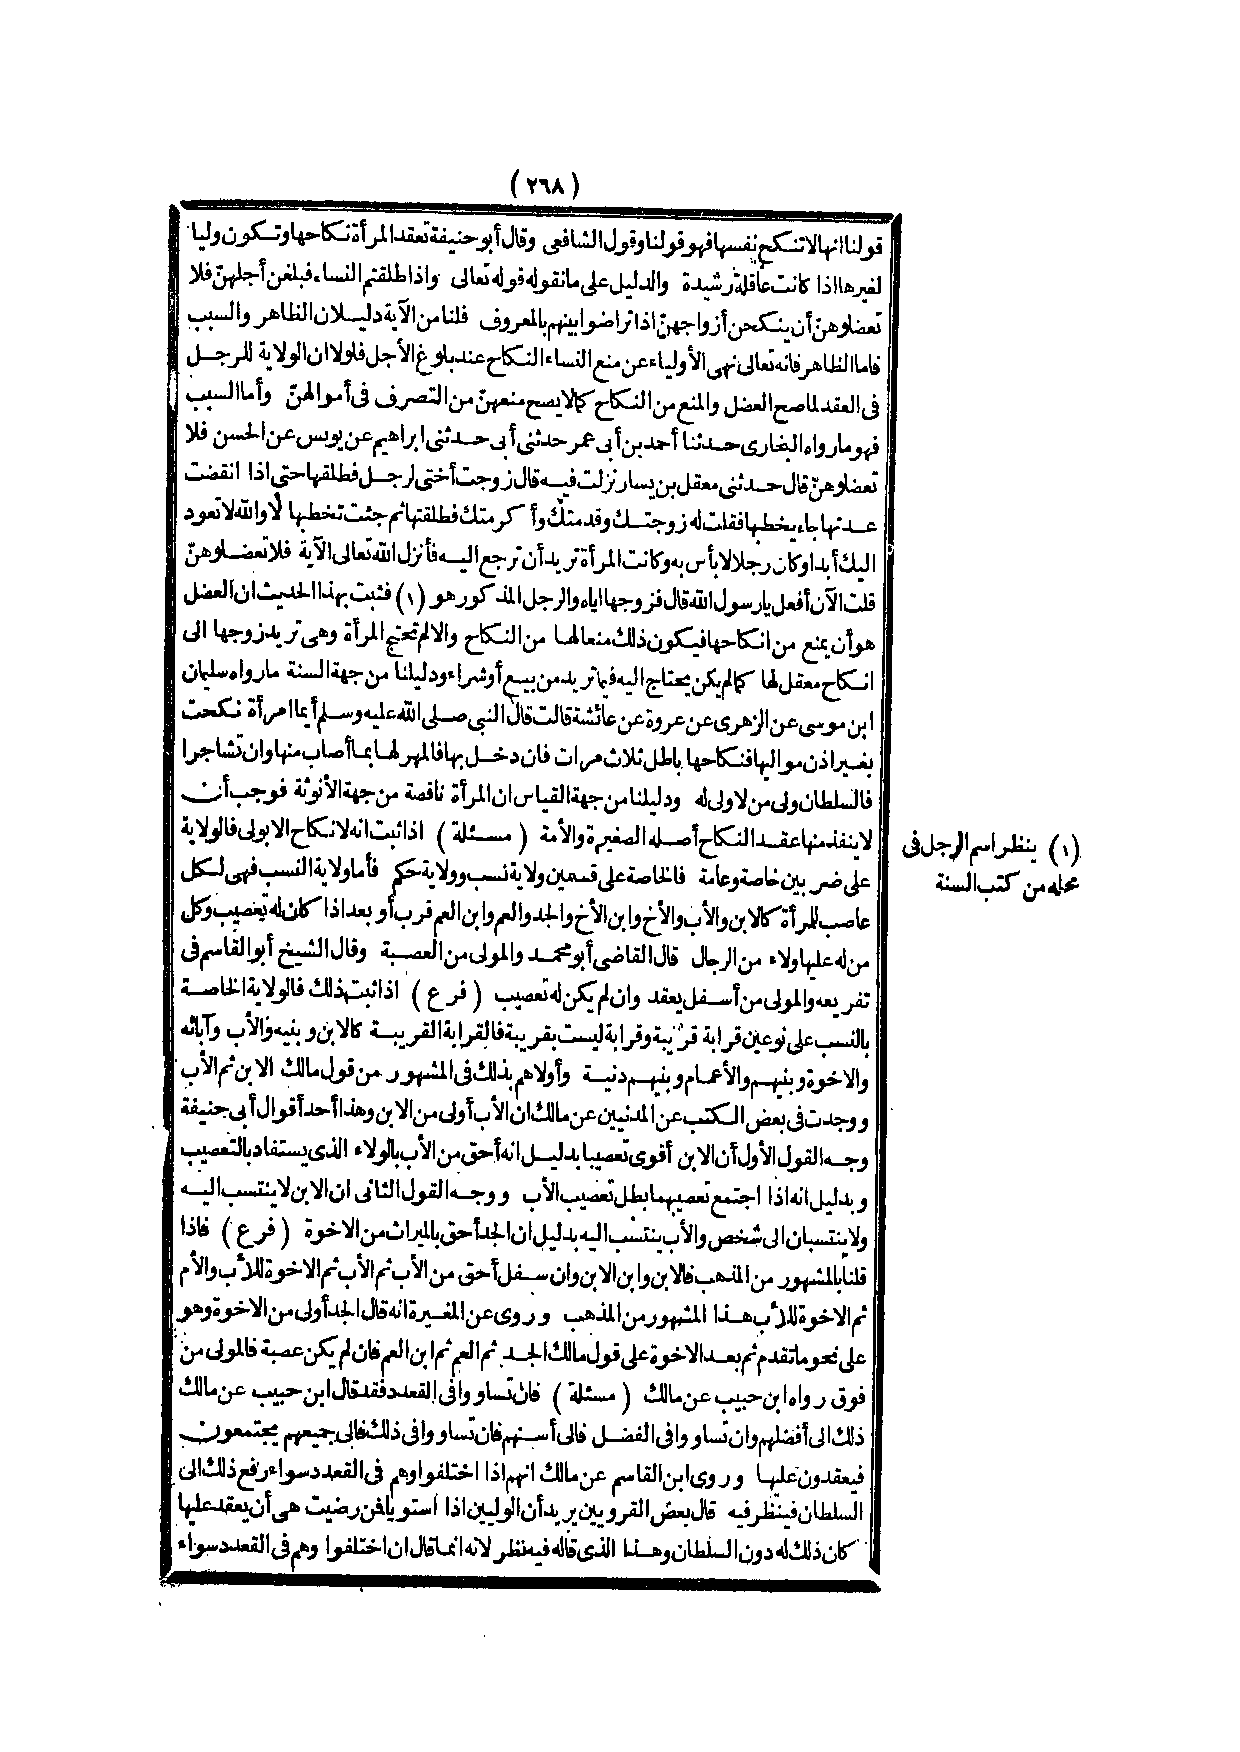 (٢٦٨)
قولنا انها لا تنكح نفسها فهو قولنا وقول الشافعى وقال أبو حنيفة تعقد المرأة نكاحها وتكون وليا
لغيرها اذا كانت عاقلة رشيدة والدليل على ما نقوله قوله تعالى واذا طلقتم النساء فبلغن أجلهنّ فلا
تعضلوهنّ أن ينكحن أزواجهنّ اذا تراضوا بينهم بالمعروف فلنا من الآية دليلان الظاهر والسبب
فاما الظاهر فانه تعالى نهى الأولياء عن منع النساء النكاح عند بلوغ الأجل فلولا ان الولاية للرجل
فى العقد لما صح العضل والمنع من النكاح كما لا يصح منعهنّ من التصرف فى أموالهنّ وأما السبب
فهو ما رواه البخارى حدثنا أحمد بن أبى عمر حدثنى أبى حدثنى ابراهيم عن يونس عن الحسن فلا
تعضلوهنّ قال حدثنى معقل بن يسار نزلت فيه قال زوجت أختى لرجل فطلقها حتى اذا انقضت
عدتها جاء يخطبها فقلت له زوجتك وقدمتك وأكرمتك فطلقتها ثم جئت تخطبها لا والله لا تعود
اليك أبدا وكان رجلا لا بأس به وكانت المرأة تريد أن ترجع اليه فأنزل الله تعالى الآية فلا تعضلوهنّ
قلت الآن أفعل يا رسول الله قال فزوجها اياه والرجل المذكور هو (١) فثبت بهذا الحديث ان العضل
هو أن يمنع من انكاحها فيكون ذلك منعا لها من النكاح والا لم تحتج المرأة وهى تريد زوجها الى
انكاح معقل لها كما لم يكن يحتاج اليه فيما تريد من بيع أو شراء ودليلنا من جهة السنة ما رواه سليمان
ابن موسى عن الزهرى عن عروة عن عائشة قالت قال النبى صلى الله عليه وسلم أيما امرأة نكحت
بغير اذن مواليها فنكاحها باطل ثلاث مرات فان دخل بها فالمهر لها بما أصاب منها وان تشاجرا
فالسلطان ولى من لا ولى له ودليلنا من جهة القياس ان المرأة ناقصة من جهة الأنوثة فوجب أن
لا ينفذ منها عقد النكاح أصله الصغيرة والأمة (مسئلة) اذا ثبت انه لا نكاح الا بولى فالولاية
على ضربين خاصة وعامة فالخاصة على قسمين ولاية نسب وولاية حكم فأما ولاية النسب فهى لكل
عاصب للمرأة كالابن والأب والأخ وابن الأخ والجد والعم وابن العم قرب أو بعد اذا كان له تعصيب وكل
من له عليها ولاء من الرجال قال القاضى أبو محمد والمولى من العصبة وقال الشيخ أبو القاسم فى
تفريعه والمولى من أسفل يعقد وان لم يكن له تعصيب (فرع) اذا ثبت ذلك فالولاية الخاصة
بالنسب على نوعين قرابة قريبة وقرابة ليست بقريبة فالقرابة القريبة كالابن وبنيه والأب وآبائه
والاخوة وبنيهم والأعمام وبنيهم دنية وأولاهم بذلك فى المشهور من قول مالك الابن ثم الأب
ووجدت فى بعض الكتب عن المدنيين عن مالك ان الأب أولى من الابن وهذا أحد أقوال أبى حنيفة
وجه القول الأول أن الابن أقوى تعصيبا بدليل انه أحق من الأب بالولاء الذى يستفاد بالتعصيب
وبدليل انه اذا اجتمع تعصيبهما بطل تعصيب الأب ووجه القول الثانى ان الابن لا ينتسب اليه
ولا ينتسبان الى شخص والأب ينتسب اليه بدليل ان الجد أحق بالميراث من الاخوة (فرع) فاذا
قلنا بالمشهور من المذهب فالابن وابن الابن وان سفل أحق من الأب ثم الأب ثم الاخوة للأب والأم
ثم الاخوة للأب هذا المشهور من المذهب وروى عن المغيرة انه قال الجد أولى من الاخوة وهو
على نحو ما تقدم ثم بعد الاخوة على قول مالك الجد ثم العم ثم ابن العم فان لم يكن عصبة فالمولى من
فوق رواه ابن حبيب عن مالك (مسئلة) فان تساووا فى القعدد فقد قال ابن حبيب عن مالك
ذلك الى أفضلهم وان تساووا فى الفضل فالى أسنهم فان تساووا فى ذلك فالى جميعهم يجتمعون
فيعقدون عليها وروى ابن القاسم عن مالك انهم اذا اختلفوا وهم فى القعدد سواء رفع ذلك الى
السلطان فينظر فيه قال بعض القرويين يريد أن الوليين اذا استويا فمن رضيت هى أن يعقد عليها
كان ذلك له دون السلطان وهذا الذى قاله فيه نظر لانه انما قال ان اختلفوا وهم فى القعدد سواء
(١) ينظر اسم الرجل فى
محله من كتب السنة